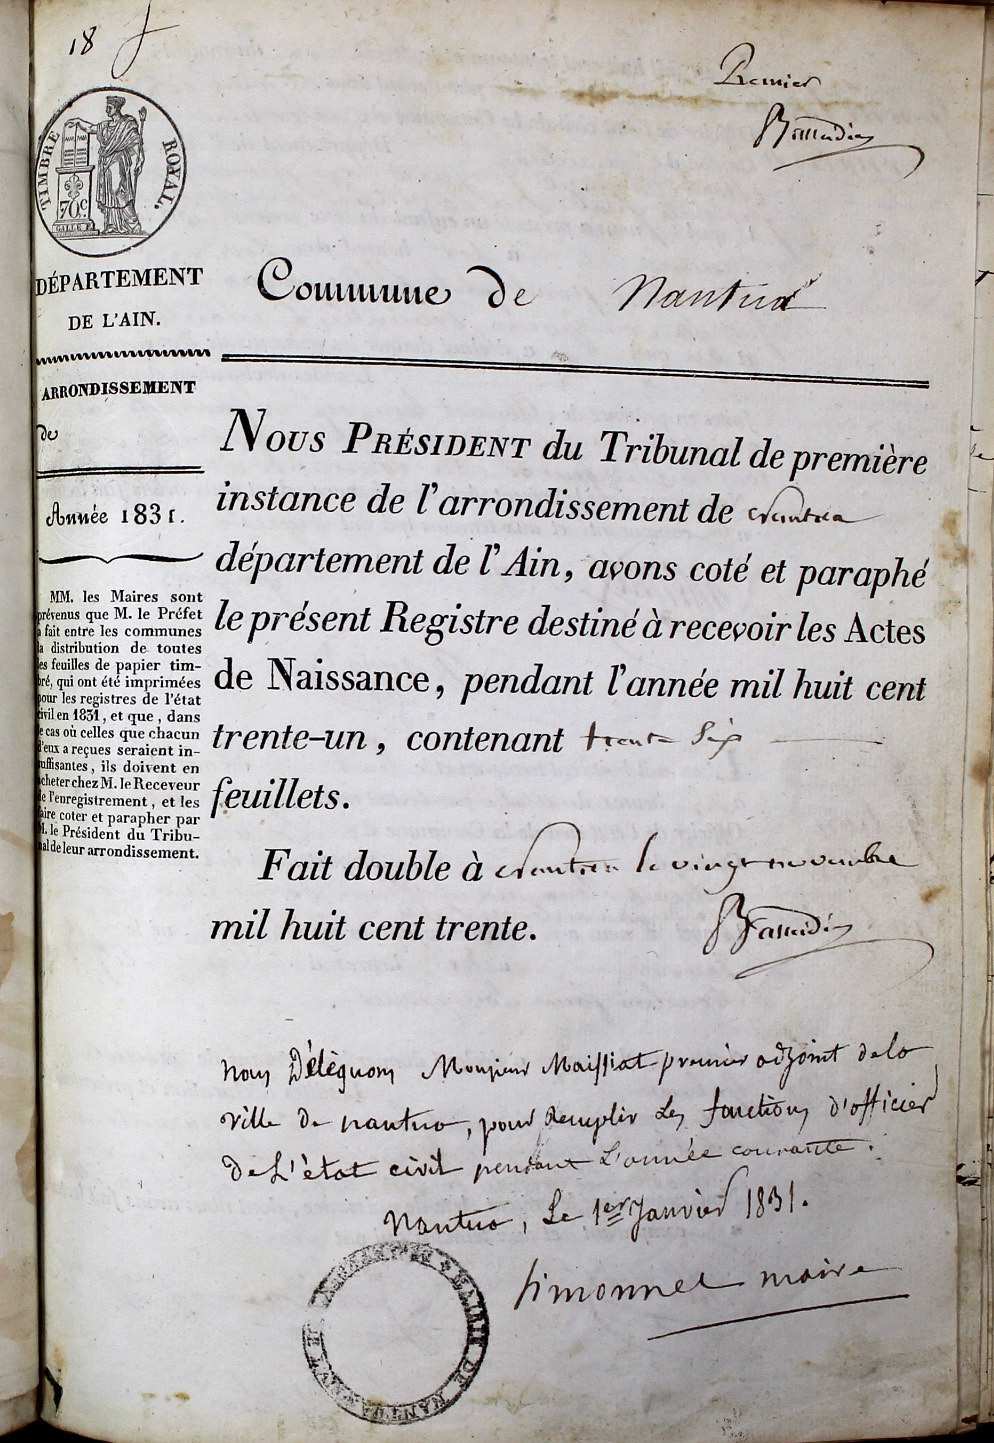 18
Premier
TIMBRE ROYAL.
70.c
DÉPARTEMENT
DE L'AIN.
Commune de Nantua
ARRONDISSEMENT
de
Année 1831.
MM. les Maires sont
prévenus que M. le Préfet
a fait entre les communes
la distribution de toutes
les feuilles de papier tim-
bré, qui ont été imprimées
pour les registres de l'état
civil en 1831, et que, dans
le cas où celles que chacun
d'eux a reçues seraient in-
suffisantes, ils doivent en
acheter chez M. le Receveur
de l'enregistrement, et les
faire coter et parapher par
M. le Président du Tribu-
nal de leur arrondissement.
NOUS PRÉSIDENT du Tribunal de première
instance de l'arrondissement de Nantua
département de l'Ain, avons coté et paraphé
le présent Registre destiné à recevoir les Actes
de Naissance, pendant l'année mil huit cent
trente-un, contenant trente Six
feuillets.
Fait double à Nantua le vingt novembre
mil huit cent trente.
Nous Délèguons Monsieur Maissiat premier adjoint de la
ville de nantua, pour Remplir Les fonctions d'officier
de L'ètat civil pendant L'année courante.
Nantua, Le 1er Janvier 1831.
Simonnet maire
MAIRIE DE NANTUA